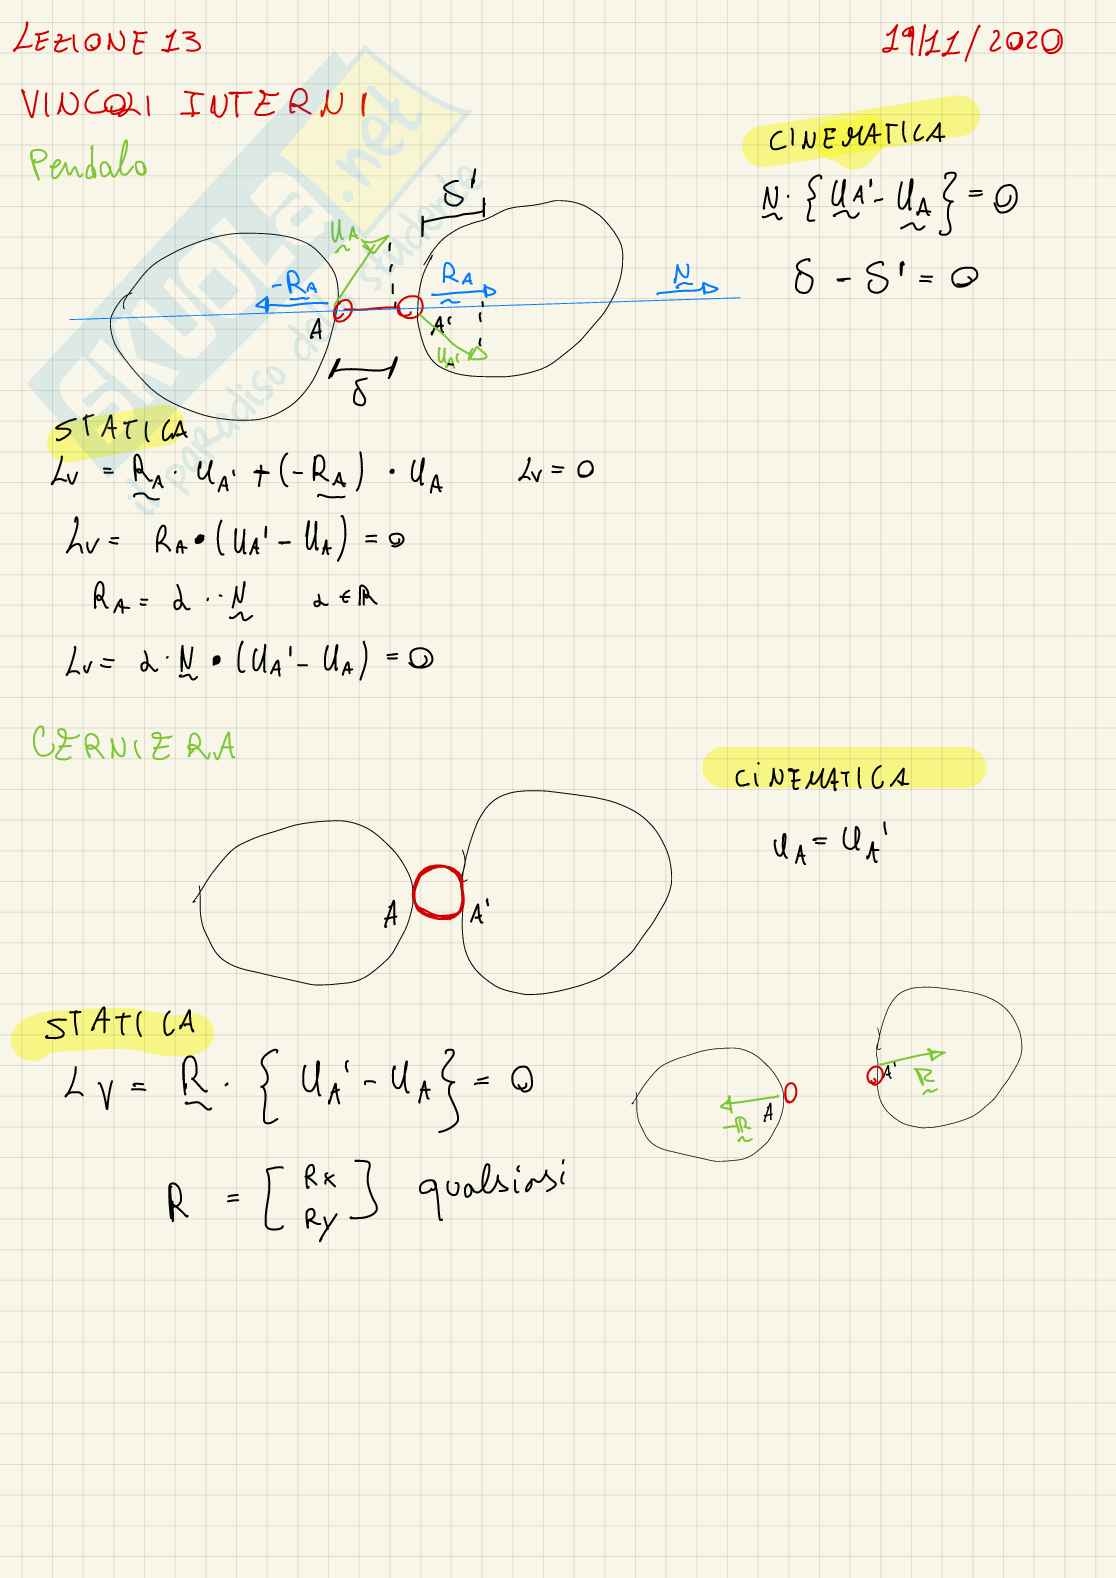 LEZIONE 13
19/11/2020
VINCOLI INTERNI
Pendalo
CINEMATICA
N · {UA' - UA} = 0
δ - δ' = 0
δ'
UA
-RA
RA
N
A
A'
UA'
δ
STATICA
Lv = RA · UA' + (-RA) · UA
Lv = 0
Lv = RA • (UA' - UA) = 0
RA = α ·· N
α ∈ ℝ
Lv = α · N • (UA' - UA) = 0
CERNIERA
CINEMATICA
UA = UA'
A
A'
STATICA
Lv = R · { UA' - UA} = 0
A'
R
A
-R
R = [Rx Ry] qualsiasi
SKUOLA.net
il paradiso dello studente